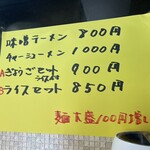 味噌ラーメン 800円
チャーシューメン 1000円
Aぎょうざセット 900円
Bライスセット 850円
麺大盛100円増し